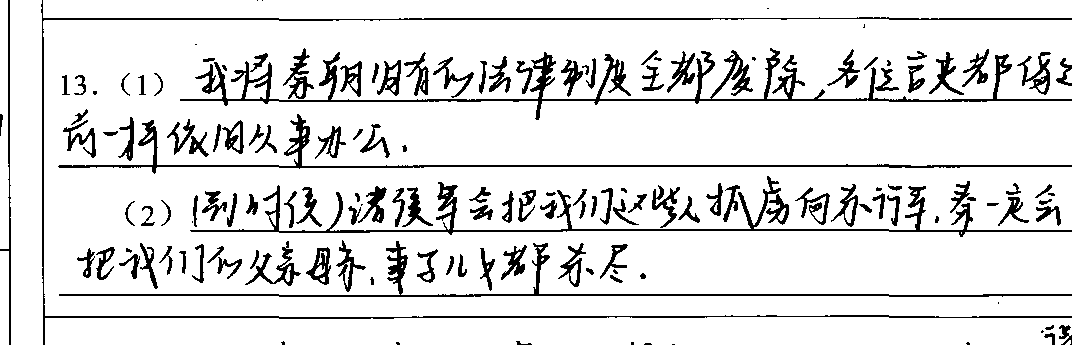 13.（1）我将秦朝旧有的法律制度全都废除,各位官吏都像之
前一样依旧从事办公.
（2）(到时候)诸侯军会把我们这些人抓虏向东行军.秦一定会
把我们的父亲母亲,妻子儿女都杀尽.